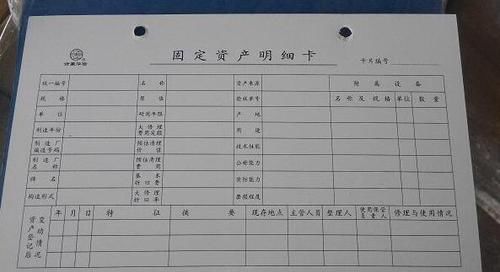 固定资产明细卡
卡片编号
统一编号 名称 资产来源 附属设备
规格 原值 验收单号 名称及规格 单位 数量
单位 耐用年限 产地
制造年份 大修理费用定额 用途
制造厂编造号码 预估清理价值 技术性能
制造厂名 预估清理费用 公称能力
牌名 基本折旧费
构造形式 大修理折旧率
资产登记后变动情况 年 月 日 特征摘要 现存地点 主管人员 整理人 修理与使用情况